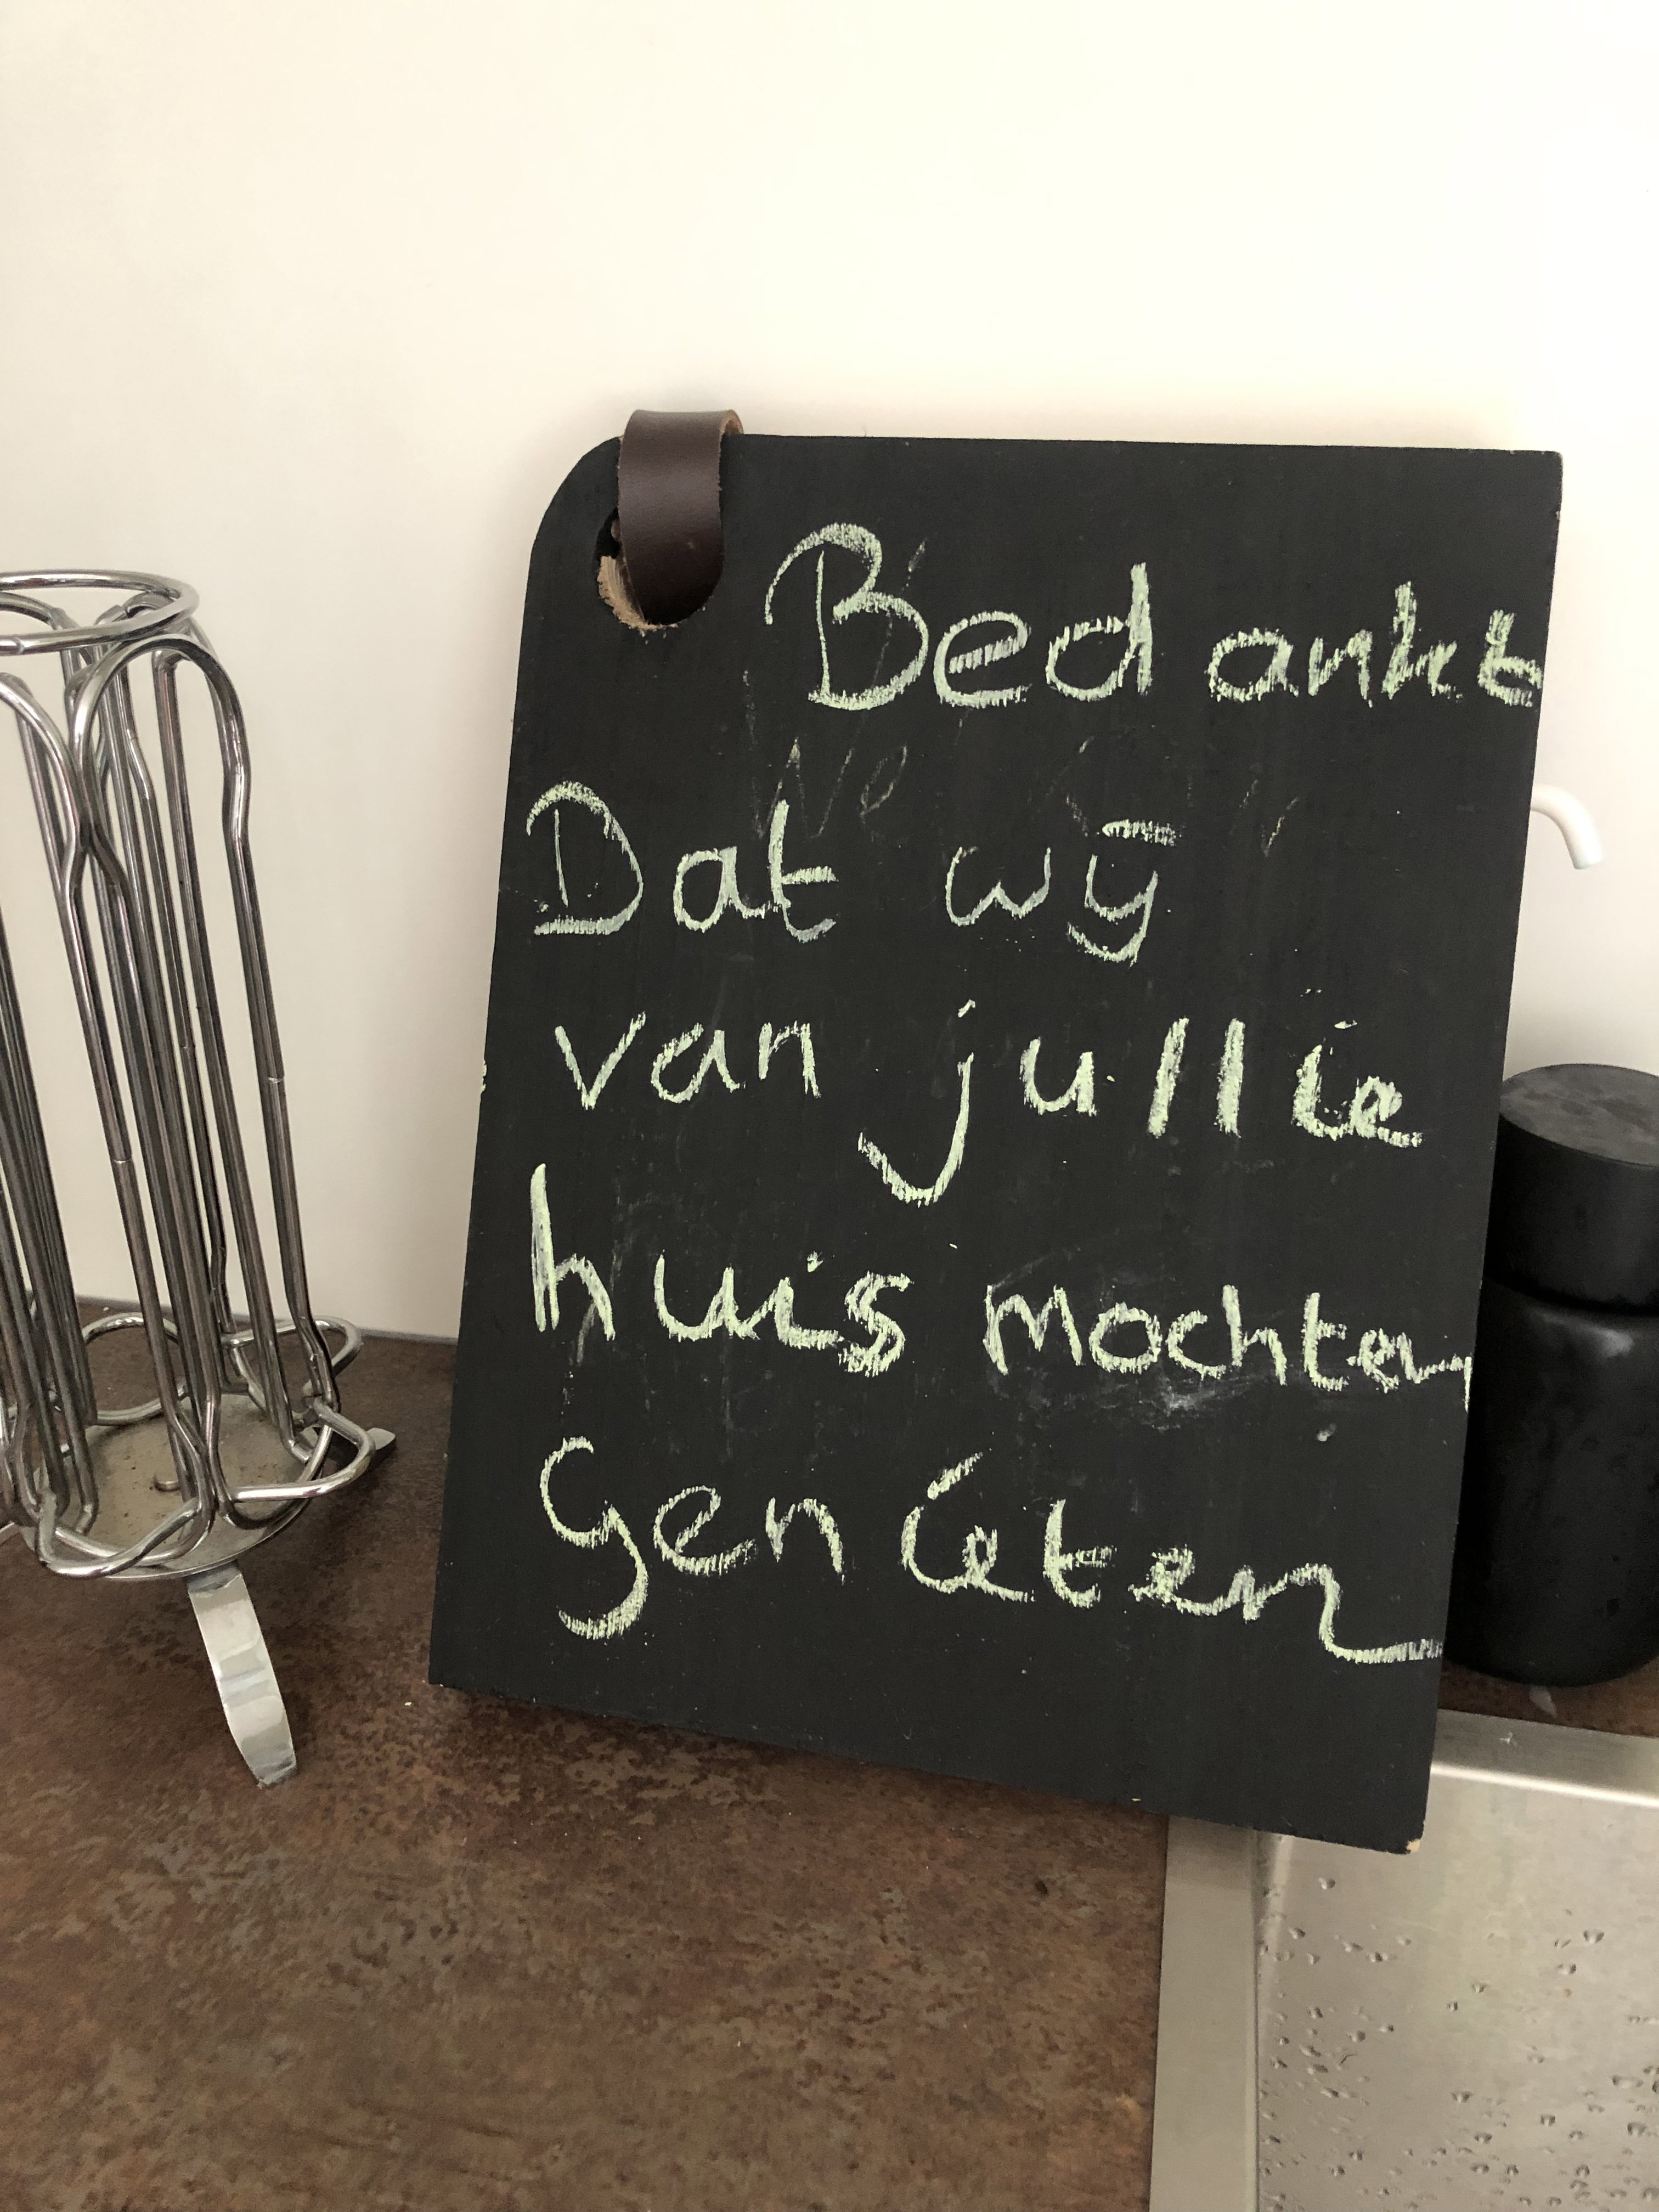 Bedankt
Dat wij
van jullie
huis mochten
genieten